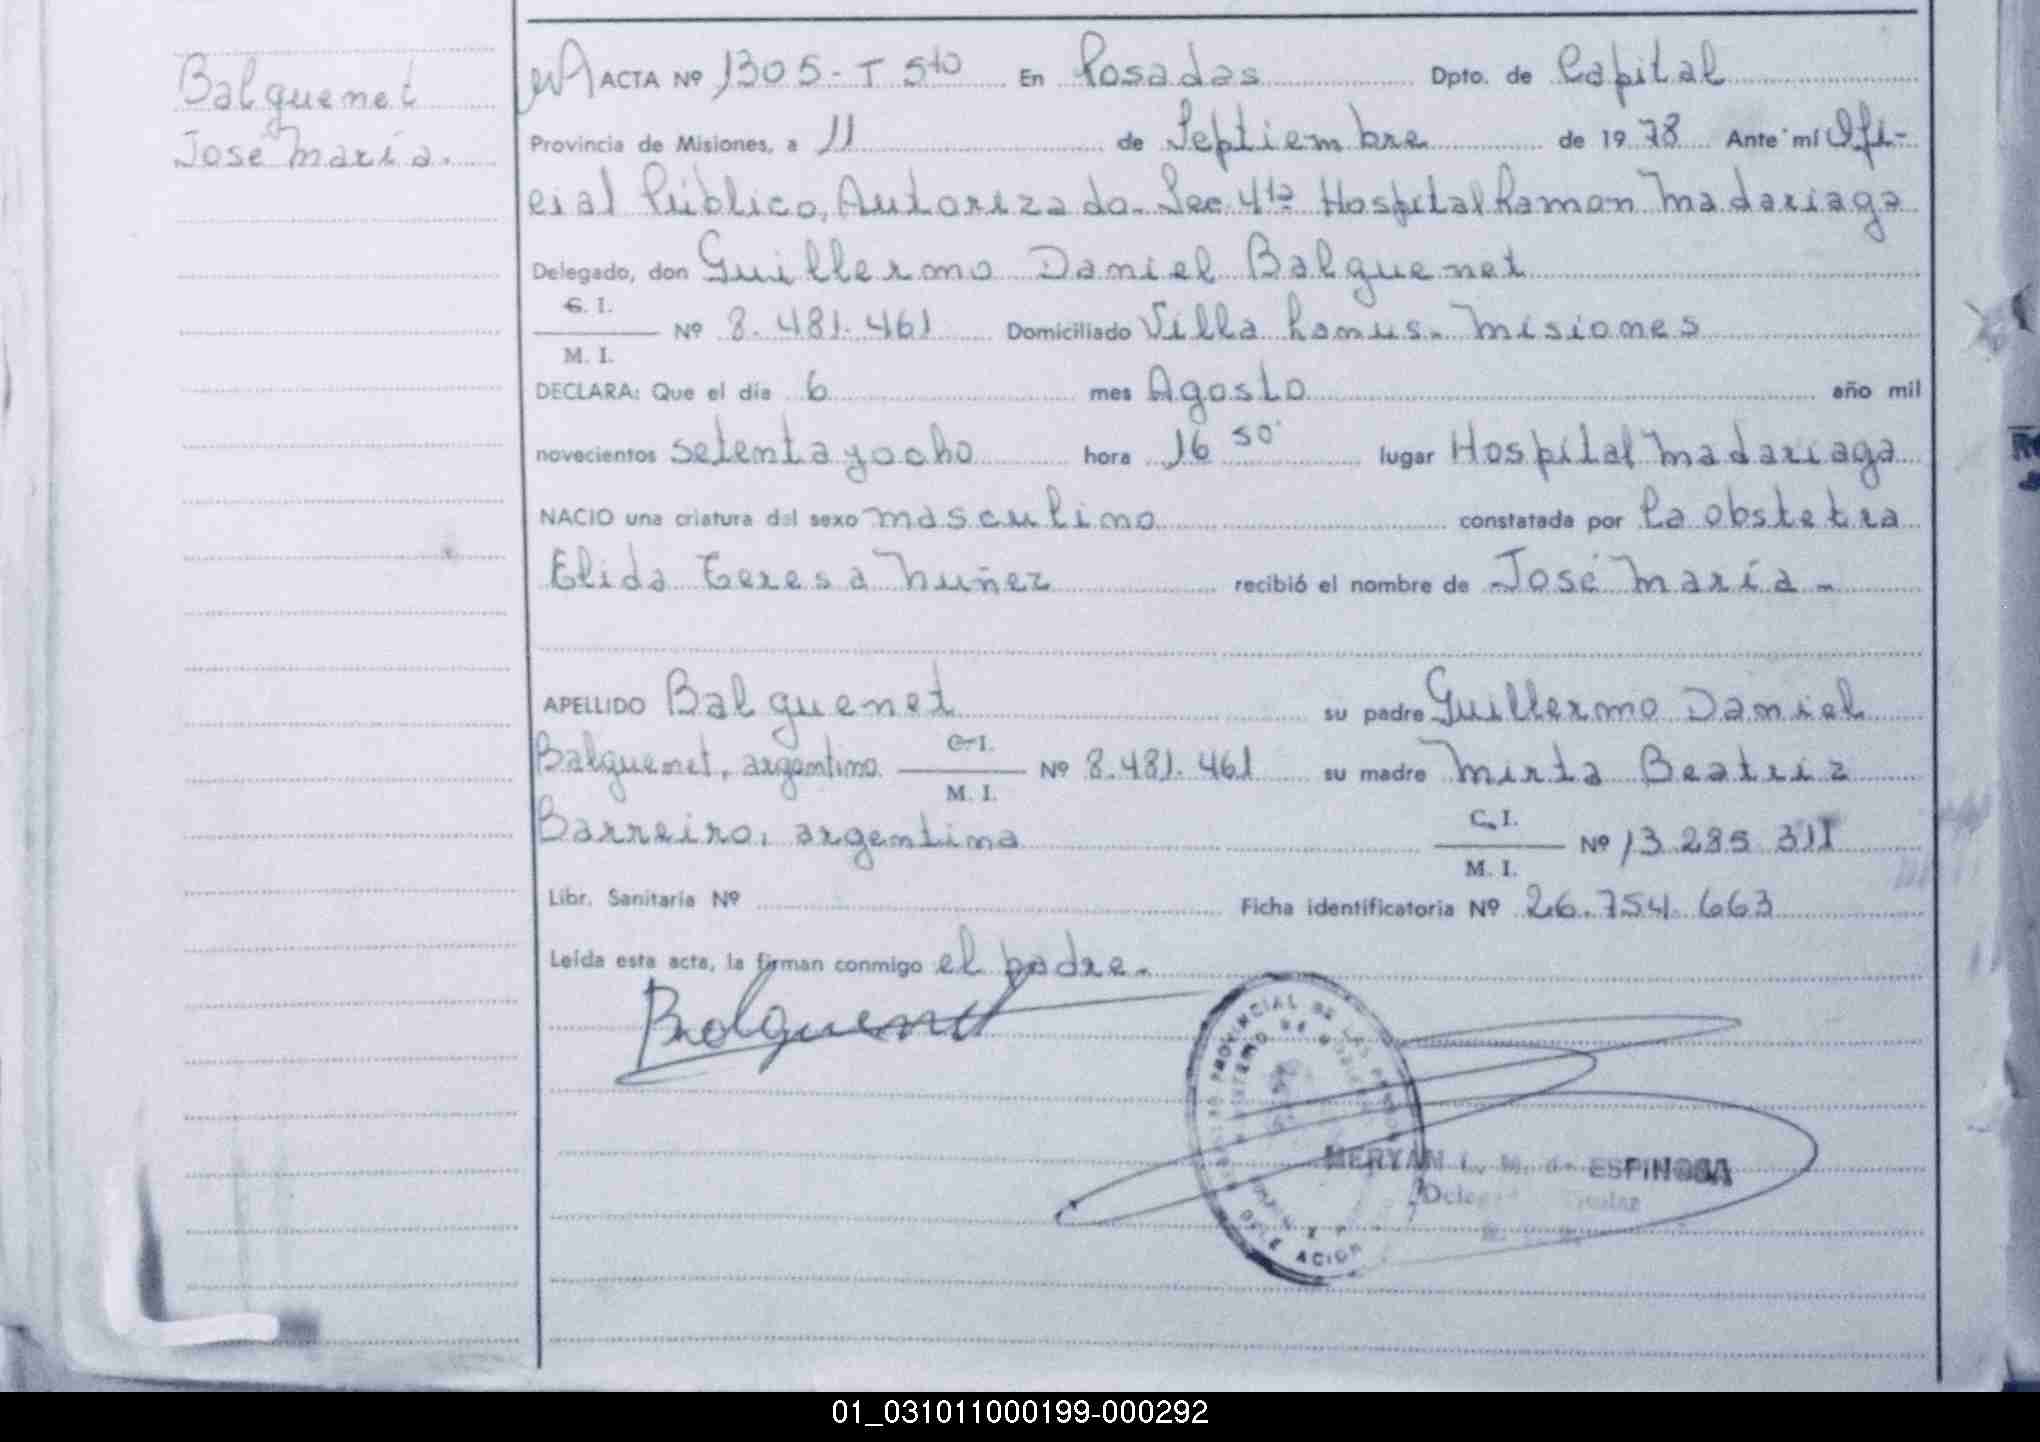 Balguenet
José María.
ACTA Nº 1305 - T 5to En Posadas Dpto. de Capital
Provincia de Misiones, a 11 de Septiembre de 1978 Ante mí Ofi-
cial Público, Autorizado. Sec 4ta Hospital Ramon Madariaga
Delegado, don Guillermo Daniel Balguenet
C. I.
Nº 8.481.461 Domiciliado Villa Lanus. Misiones
M. I.
DECLARA: Que el día 6 mes Agosto año mil
novecientos setenta y ocho hora 16 50' lugar Hospital Madariaga
NACIO una criatura del sexo masculino constatada por la obstetra
Elida Teresa Nuñez recibió el nombre de José María -
APELLIDO Balguenet su padre Guillermo Daniel
C. I.
Balguenet, argentino. Nº 8.481.461 su madre Mirta Beatriz
M. I.
C. I.
Barreiro, argentina Nº 13 285 311
M. I.
Libr. Sanitaria Nº Ficha identificatoria Nº 26.754.663
Leída esta acta, la firman conmigo el padre.
Balguenet
PROVINCIAL DE LAS PERSONAS
MINISTERIO DE
MERYAN L. M. de ESPINOSA
01_031011000199-000292